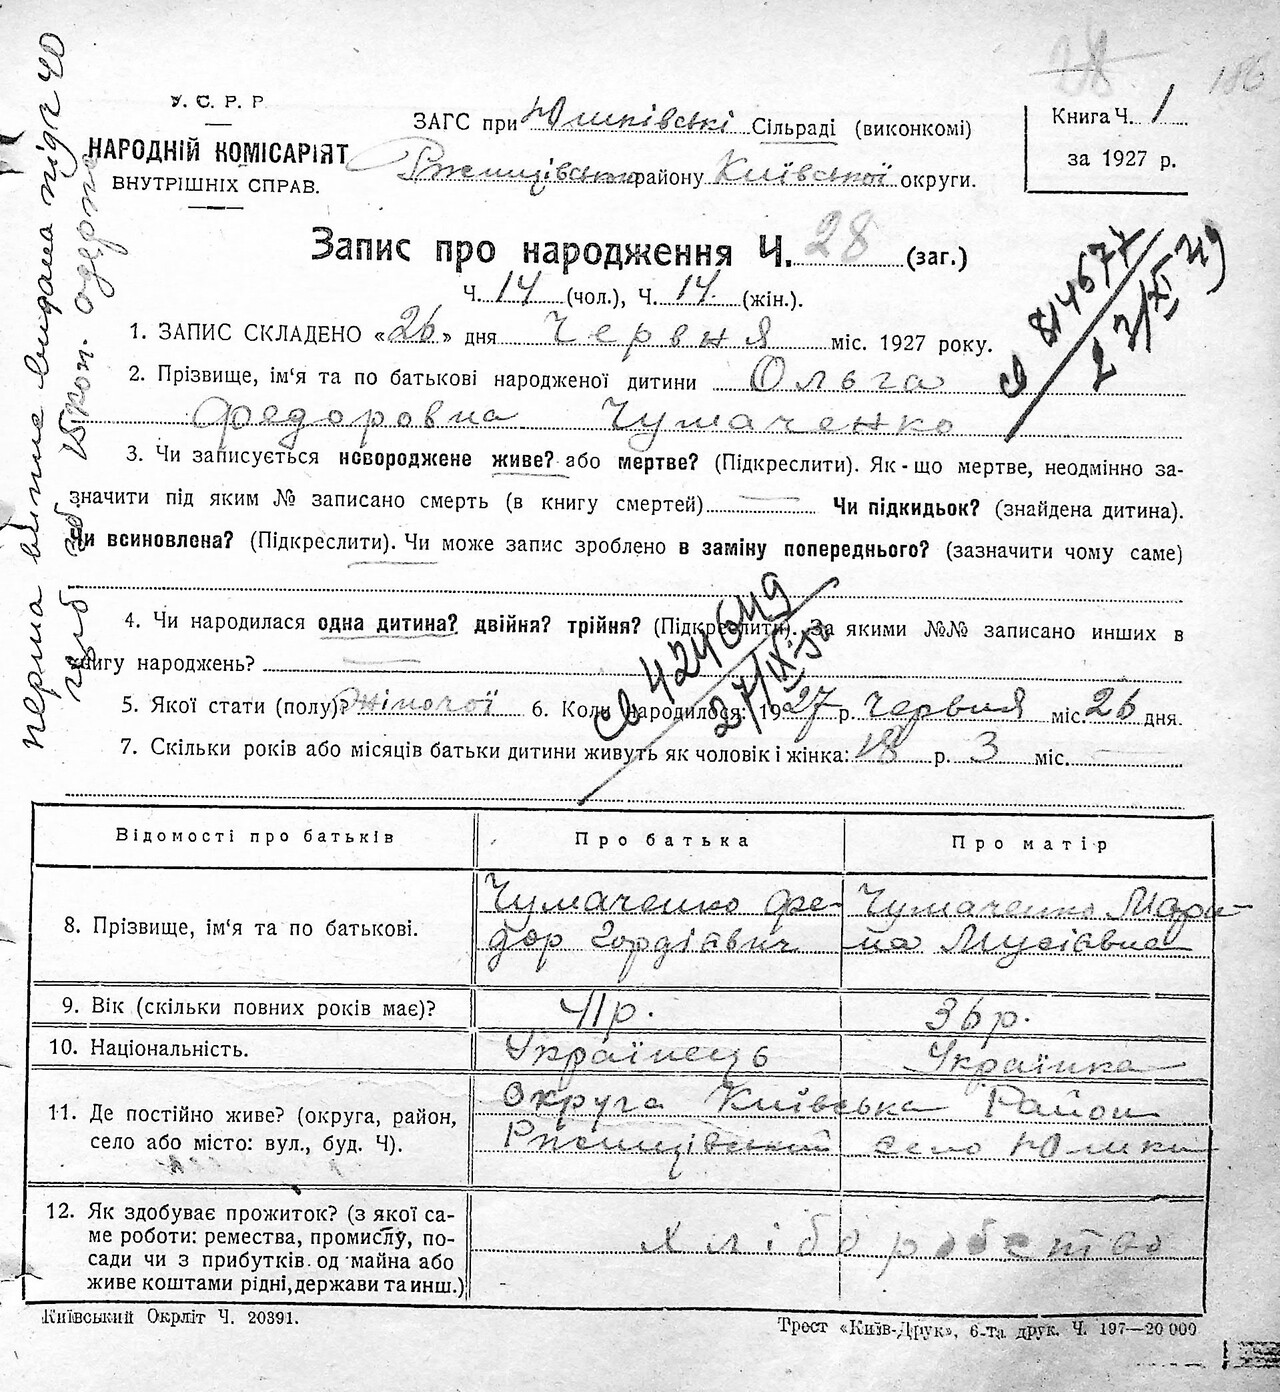 28
186
У. С. Р. Р
НАРОДНІЙ КОМІСАРІЯТ
ВНУТРІШНІХ СПРАВ.
ЗАГС при Юшківські Сільраді (виконкомі)
Ржищівського району Київської округи.
Книга Ч. 1
за 1927 р.
Запис про народження Ч. 28 (заг.)
Ч. 14 (чол.), Ч. 14. (жін.).
1. ЗАПИС СКЛАДЕНО «26» дня Червня міс. 1927 року.
2. Прізвище, ім'я та по батькові народженої дитини Ольга
Федоровна Чумаченко
3. Чи записується новороджене живе? або мертве? (Підкреслити). Як-що мертве, неодмінно за-
значити під яким № записано смерть (в книгу смертей) Чи підкидьок? (знайдена дитина).
Чи всиновлена? (Підкреслити). Чи може запис зроблено в заміну попереднього? (зазначити чому саме)
4. Чи народилася одна дитина? двійня? трійня? (Підкреслити). За якими №№ записано инших в
книгу народжень?
5. Якої стати (полу)? жіночої 6. Коли народилося: 1927 р. Червня міс. 26 дня.
7. Скільки років або місяців батьки дитини живуть як чоловік і жінка: 18 р. 3 міс.
Відомості про батьків Про батька Про матір
8. Прізвище, ім'я та по батькові. Чумаченко Фе- Чумаченко Мари-
дор Гордієвич на Мусієвна
9. Вік (скільки повних років має)? 41 р. 36 р.
10. Національність. Українець Українка
11. Де постійно живе? (округа, район, Округа Київська Район
село або місто: вул., буд. Ч). Ржищівський село Юшки
12. Як здобуває прожиток? (з якої са-
ме роботи: ремества, промислу, по- хліборобство
сади чи з прибутків од майна або
живе коштами рідні, держави та инш.)
Київський Окрліт Ч. 20391.
Трест «Київ-Друк», 6-та друк. Ч. 197—20 000
814677
424649
27/IX 50